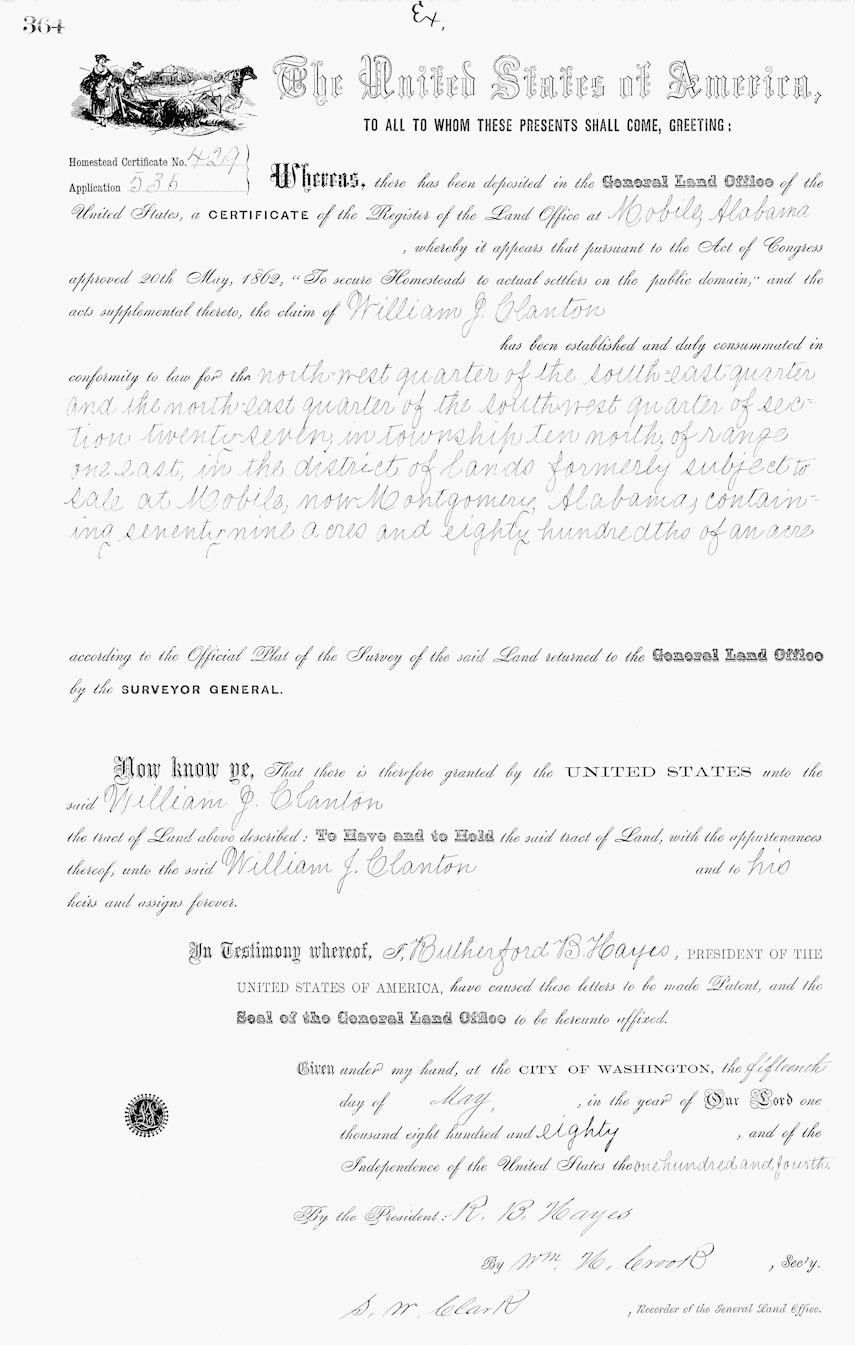 364
Ex.
The United States of America,
TO ALL TO WHOM THESE PRESENTS SHALL COME, GREETING:
Homestead Certificate No. 429
Application 535
Whereas, there has been deposited in the General Land Office of the
United States, a CERTIFICATE of the Register of the Land Office at Mobile, Alabama
, whereby it appears that pursuant to the Act of Congress
approved 20th May, 1862, “To secure Homesteads to actual settlers on the public domain,” and the
acts supplemental thereto, the claim of William J. Clanton
has been established and duly consummated in
conformity to law for the north-west quarter of the south-east quarter
and the north-east quarter of the south-west quarter of sec=
tion twenty-seven, in township ten north, of range
one east, in the district of lands formerly subject to
sale at Mobile, now Montgomery, Alabama, contain=
ing seventy-nine acres and eighty hundredths of an acre
according to the Official Plat of the Survey of the said Land returned to the General Land Office
by the SURVEYOR GENERAL.
Now know ye, That there is therefore granted by the UNITED STATES unto the
said William J. Clanton
the tract of Land above described: To Have and to Hold the said tract of Land, with the appurtenances
thereof, unto the said William J. Clanton and to his
heirs and assigns forever.
In Testimony whereof, I, Rutherford B. Hayes, PRESIDENT OF THE
UNITED STATES OF AMERICA, have caused these letters to be made Patent, and the
Seal of the General Land Office to be hereunto affixed.
Given under my hand, at the CITY OF WASHINGTON, the fifteenth
day of May, , in the year of Our Lord one
thousand eight hundred and eighty , and of the
Independence of the United States the one hundred and fourth.
By the President: R. B. Hayes
By Wm. H. Crook , Sec'y.
S. W. Clark , Recorder of the General Land Office.